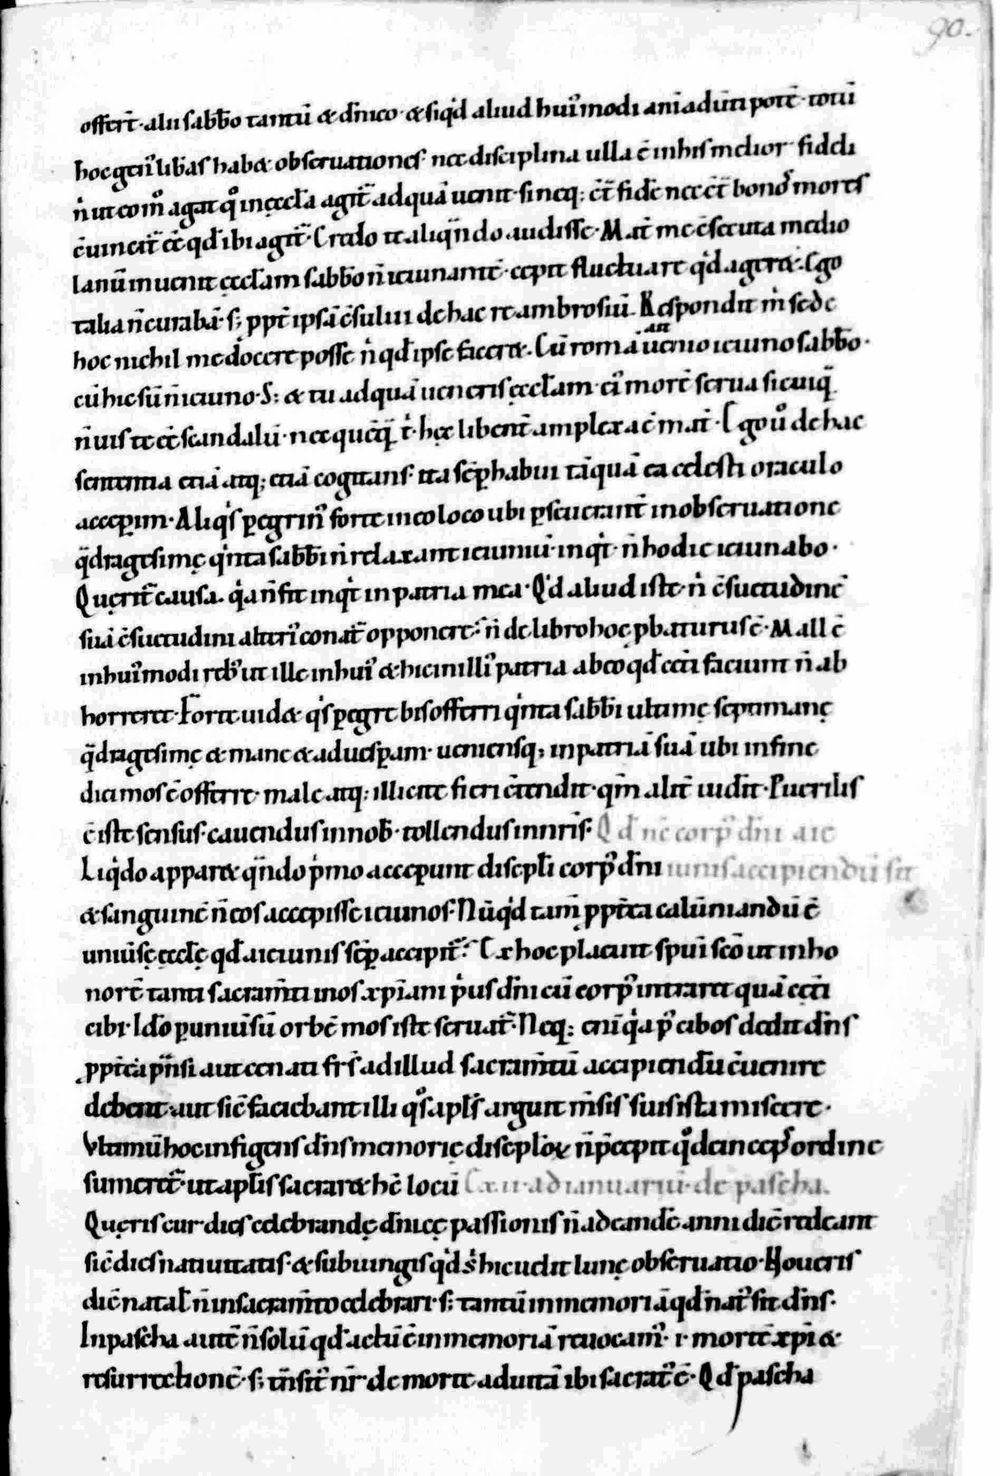 90.
offert̄· alii sabb̄o tantū & dn̄ico· & siq̇d aliud huiꝰmodi anīaduti potē· totū
hoc genꝰ lib̄as hab& obseruationes· nec disciplina ulla ē in his melior fideli
n̄ ut eo m̊ agat q̊ in ęccl̄a agit̄ ad quā uenit· si neq; c̄t̄ fidē nec c̄t̄ bonos mores
ēuincat̄ ēē qd̄ ibi agit̄· Credo te aliqn̄do audisse· Mat̄ me ēsecuta medio
lanū inuenit ęccl̄am sabb̄o n̄ ieiunantē· cepit fluctuare q̇d ager&· Ego
talia n̄ curabā· s; ppt̄ ipsā ēsului de hac re ambrosiū. Respondit m̄ se de
hoc nichil me docere posse n̄ qd̄ ipse facer&. Cū romā uenio ieiuno sabb̄o·
cū hic sū n̄ ieiuno· S; & tu ad quā ueneris ęccl̄am eiꝰ morē serua si cuiq̄
n̄ uis te ēē scandalū· nec quēq̄ t̄· hęc libent̄ amplexa ē mat̄· Ego ů de hac
sententia etiā atq; etiā cogitans ita sēp habui tāquā ea celesti oraculo
acceperim· Aliq̇s pegrinꝰ forte in eo loco ubi pseuerant̄ in obseruatione
q̄dragesimę q̇nta sabb̄i n̄ relaxant ieiuniū· inq̇t· n̄ hodie ieiunabo·
Querit̄ causa· q̇a n̄ fit inq̇t in patria mea· Q̇d aliud iste n̄ ēsuetudinē
suā ēsuetudini alteriꝰ conat̄ opponere· n̄ de libro hoc pbaturus ē· Mall ē
in huiꝰmodi rebꝰ ut ille in huiꝰ & hic in illiꝰ patria ab eo qd̄ cet̄i faciunt n̄ ab
horreret· Forte uid& q̇s pegre bis offerri q̇nta sabb̄i ultimę septimanę
q̄dragesimę & mane & ad uespam· ueniensq; in patriā suā ubi in fine
diei mos ē offerre· male atq; illicite fieri ētendit· qm̄ alit̄ uidit· Puerilis
ē iste sensus· cauendus in nob̄· tollendus in nris̄· Qd̄ nē corpꝰ dn̄i aie
Liq̇do appar& qn̄do p̊mo acceperunt discipl̄i corpꝰ dn̄i iunis accipiendū sit
& sanguinē n̄ eos accepisse ieiunos· Nūq̇d tam̄ ppt̄ea calūniandū ē
uniūse ęccl̄ę qd̄ a ieiunis sēp accipit̄· Ex hoc placuit spūi sc̄o ut in ho
norē tanti sacram̄ti in os xp̄iani p̊us dn̄i cū corpꝰ intraret quā cet̄i
cibi· Ido p uniūsū orbē mos iste seruat̄· Neq; enī q̇a pꝰ cibos dedit dn̄s
ppt̄ea pn̄si aut cenati frs̄ ad illud sacram̄tū accipiendū ēuenire
debent· aut sic̄ faciebant illi q̊s apls̄ arguit m̄sis suis ista miscere·
Vltimū hoc infigens dn̄s memorię discipl̄o& n̄ p̄cepit q̊ deinceps ordine
sumeret̄· ut apl̄is sacraret hc̄ locū Ex ii ad ianuariū· de pascha.
Queris cur dies celebrandę dn̄icę passionis n̄ ad eandē anni diē redeant
sic̄ dies natiuitatis· & subiungis q̇d s̄ hic uelit lunę obseruatio· Noueris
diē natal̄ n̄ in sacram̄to celebrari· s; tantū in memoriā qd̄ natꝰ sit dn̄s·
In pascha autē n̄ solū qd̄ actū ē in memoriā reuocamꝰ· i· mortē xp̄i &
resurrectionē· s; tn̄sitꝰ nr̄ de morte ad uitā ibi sacratꝰ ē· Qd̄ pascha